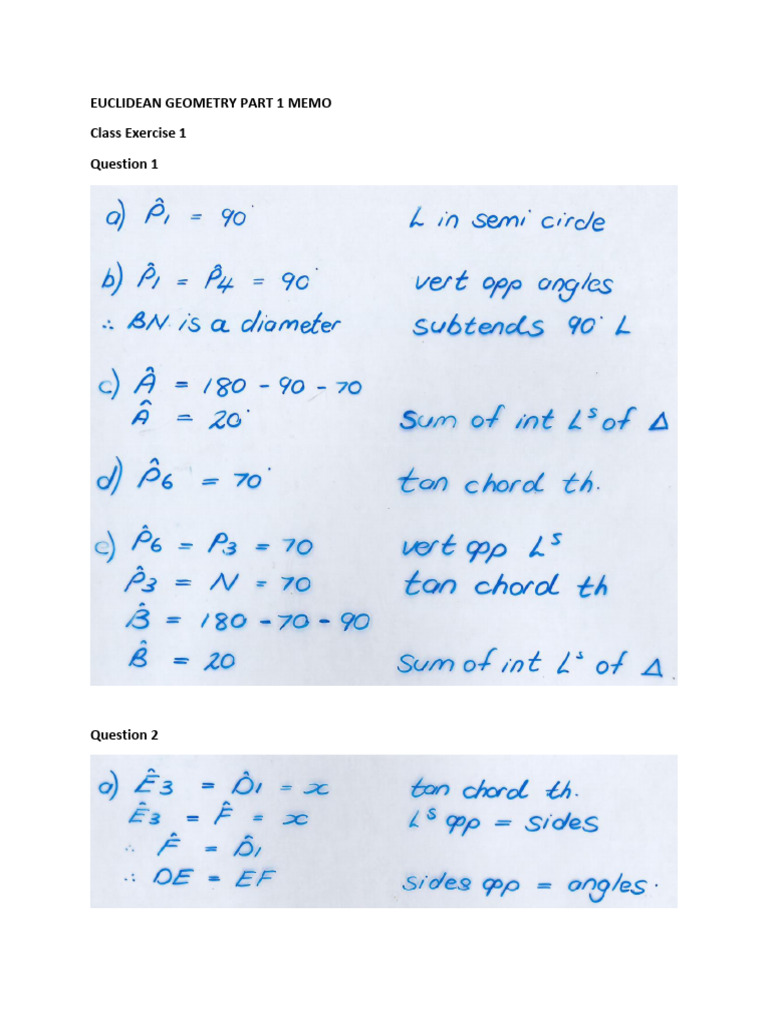 EUCLIDEAN GEOMETRY PART 1 MEMO
Class Exercise 1
Question 1
a) P̂₁ = 90° ∠ in semi circle
b) P̂₁ = P̂₄ = 90° vert opp angles
∴ BN is a diameter subtends 90° ∠
c) Â = 180 - 90 - 70
Â = 20° Sum of int ∠ˢ of Δ
d) P̂₆ = 70° tan chord th.
e) P̂₆ = P₃ = 70 vert opp ∠ˢ
P̂₃ = N = 70 tan chord th
B̂ = 180 - 70 - 90
B̂ = 20 Sum of int ∠ˢ of Δ.
Question 2
a) Ê₃ = D̂₁ = x tan chord th.
Ê₃ = F̂ = x ∠ˢ opp = sides
∴ F̂ = D̂₁
∴ DE = EF sides opp = angles.